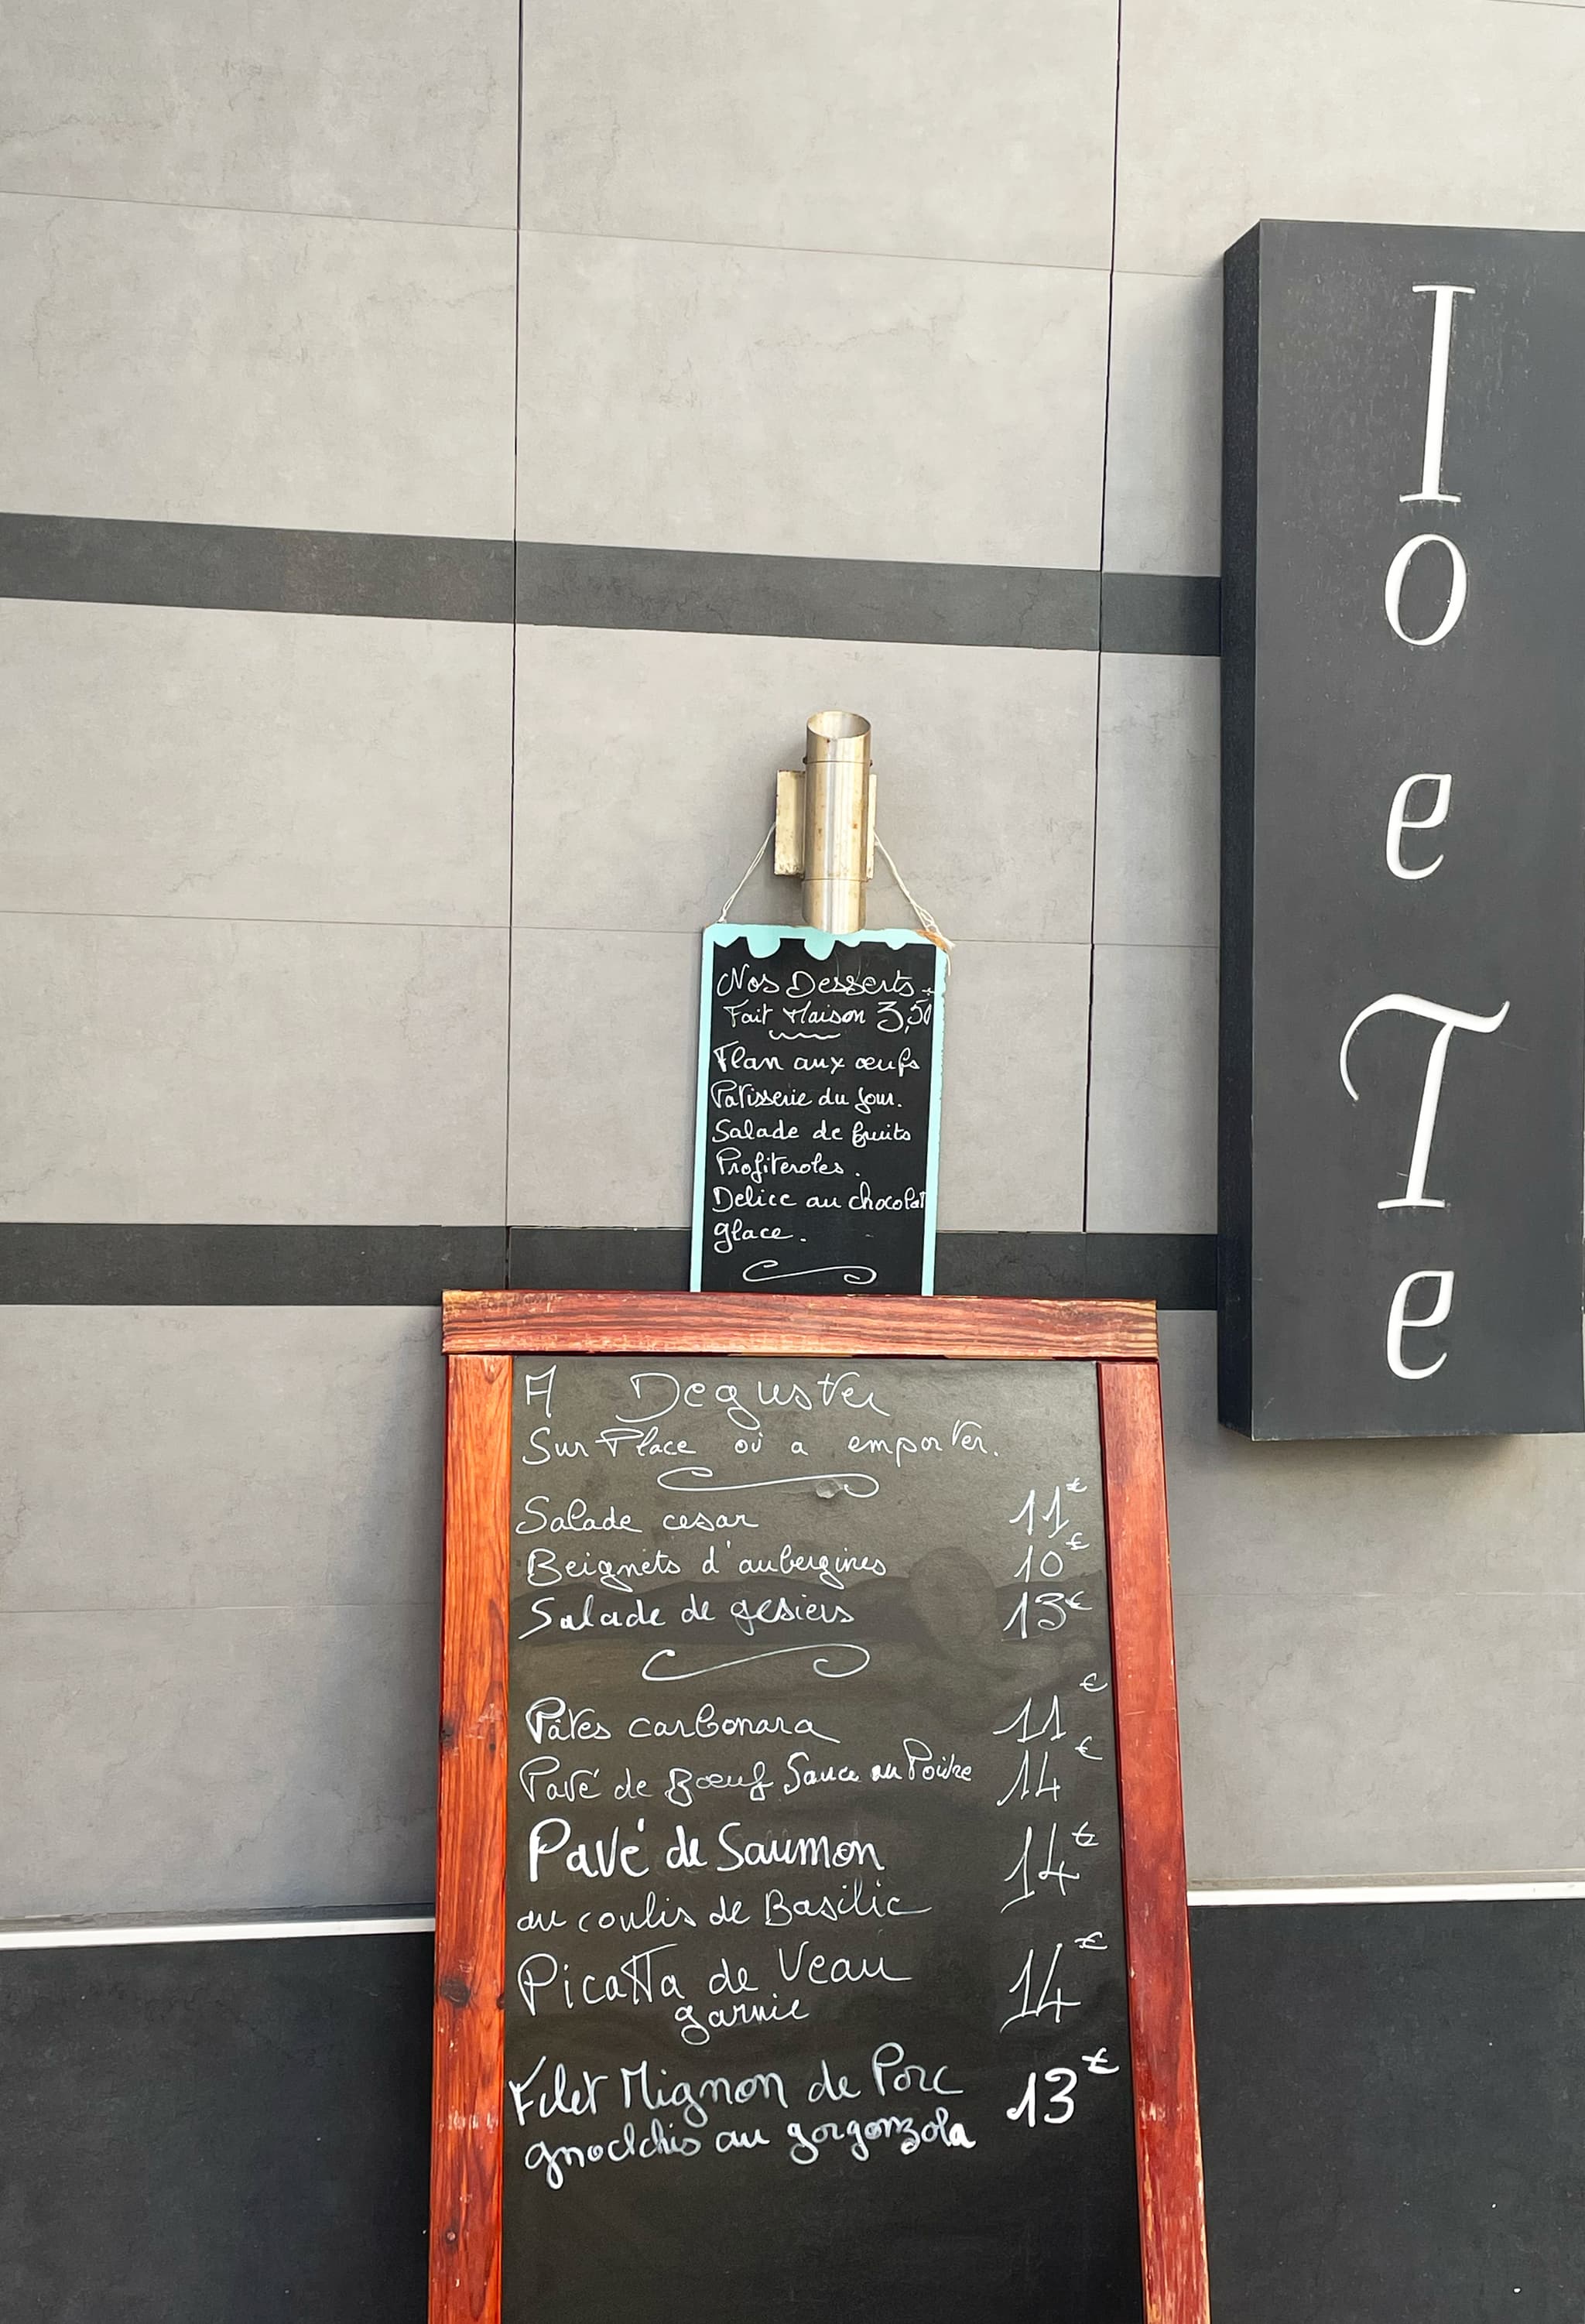 Io
e
Te
Nos Desserts
Fait Maison 3,50
Flan aux œufs
Patisserie du jour.
Salade de fruits
Profiteroles.
Delice au chocolat
glace.
A Deguster
Sur Place où a emporter.
Salade cesar 11€
Beignets d'aubergines 10€
Salade de gesiers 13€
Pâtes carbonara 11€
Pavé de Bœuf Sauce au Poivre 14€
Pavé de Saumon 14€
au coulis de Basilic
Picatta de Veau 14€
garnie
Filet Mignon de Porc 13€
gnocchis au gorgonzola